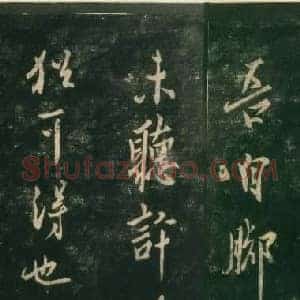 吾明腳
未聽許
猶可得也
Shufazidian.com